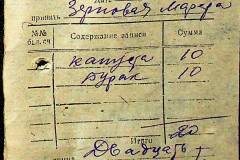 принять Зерновая Маруся
№№ Содержание записи Сумма
бл. сч
капуста 10
Бурак 10
Итого 20
Двадцать